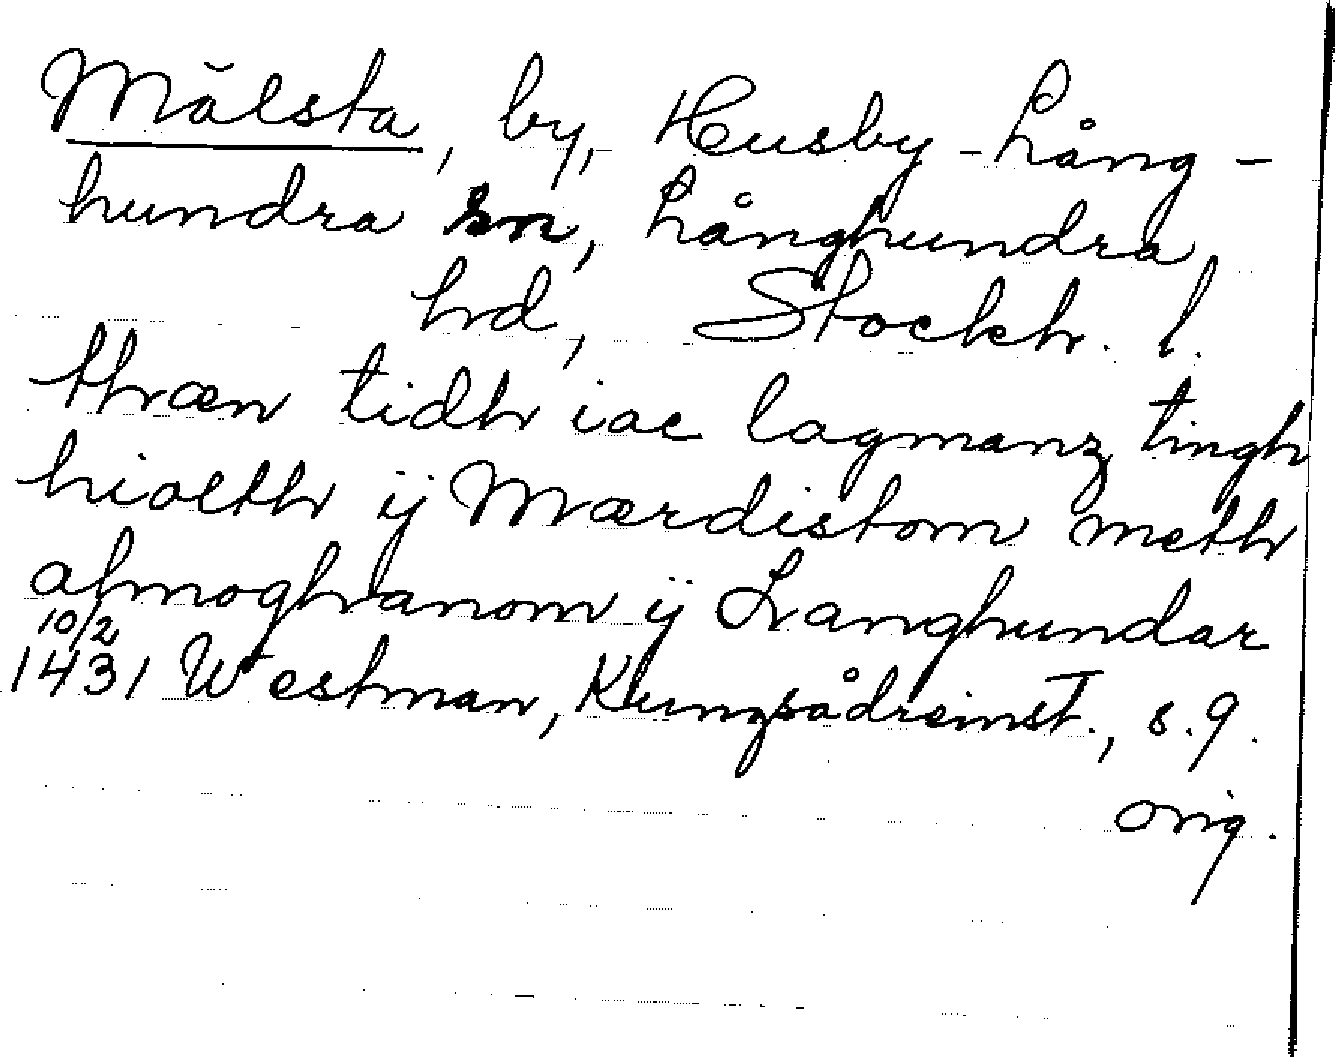 Målsta, by, Husby-Lång-
hundra sn, Långhundra
hrd, Stockh. l.
thræn tidh iac lagmanz tingh
hiolth ij Mærdistom meth
almoghanom ij Langhundar
10/2
1431 Westman, Kungsådreinst., s. 9.
orig.